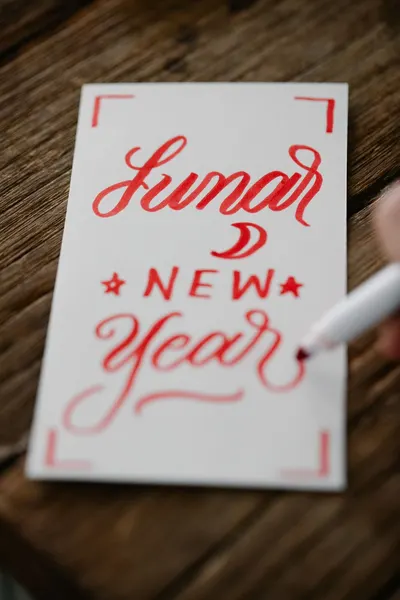 Lunar
NEW
Year